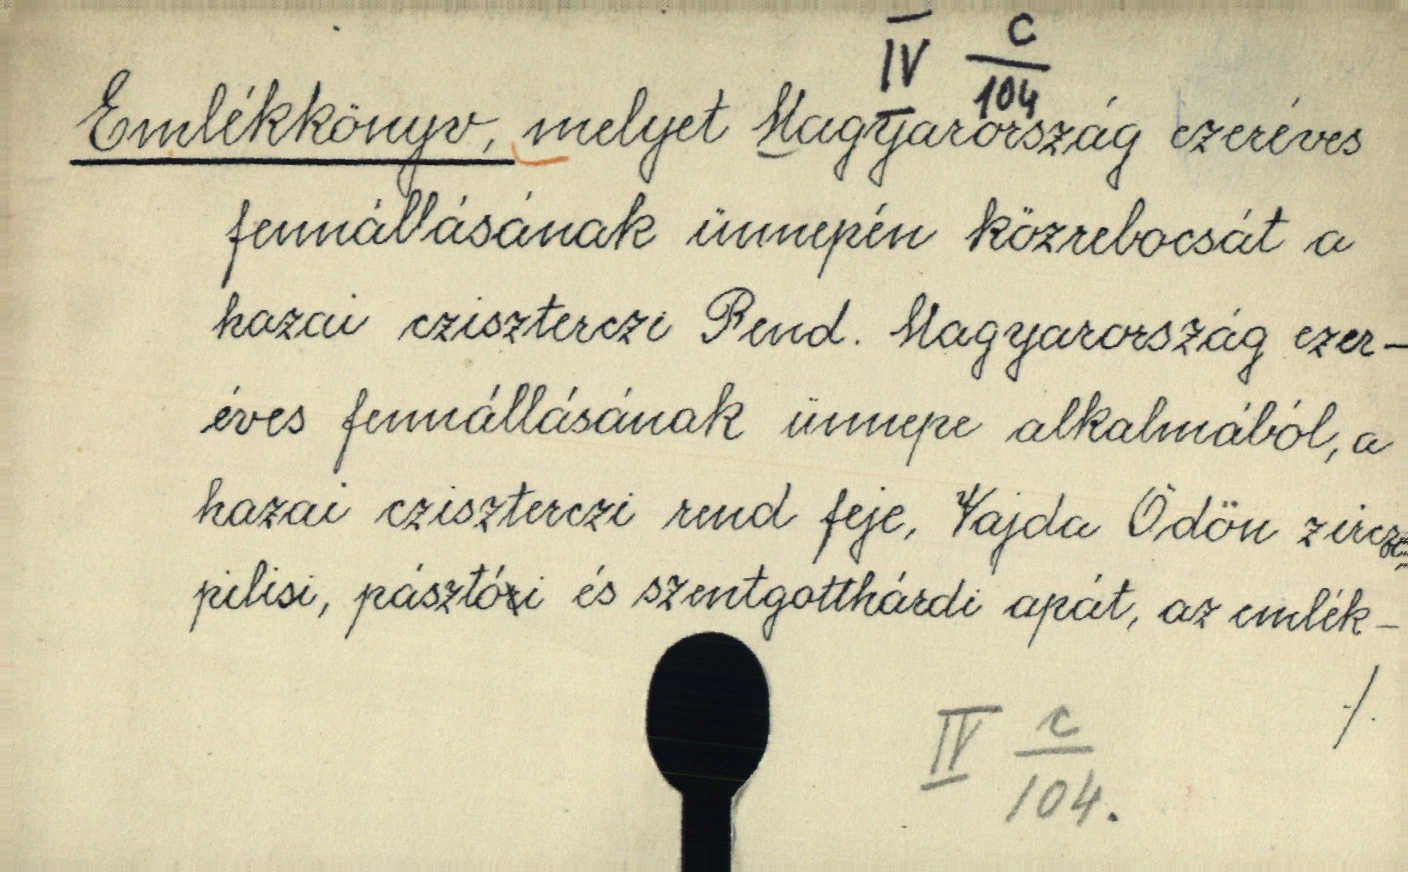 IV c/104
Emlékkönyv, melyet Magyarország ezeréves
fennállásának ünnepén közrebocsát a
hazai cziszterczi Rend. Magyarország ezer-
éves fennállásának ünnepe alkalmából, a
hazai cziszterczi rend feje, Vajda Ödön zircz,
pilisi, pásztói és szentgotthárdi apát, az emlék-
./.
IV c/104.